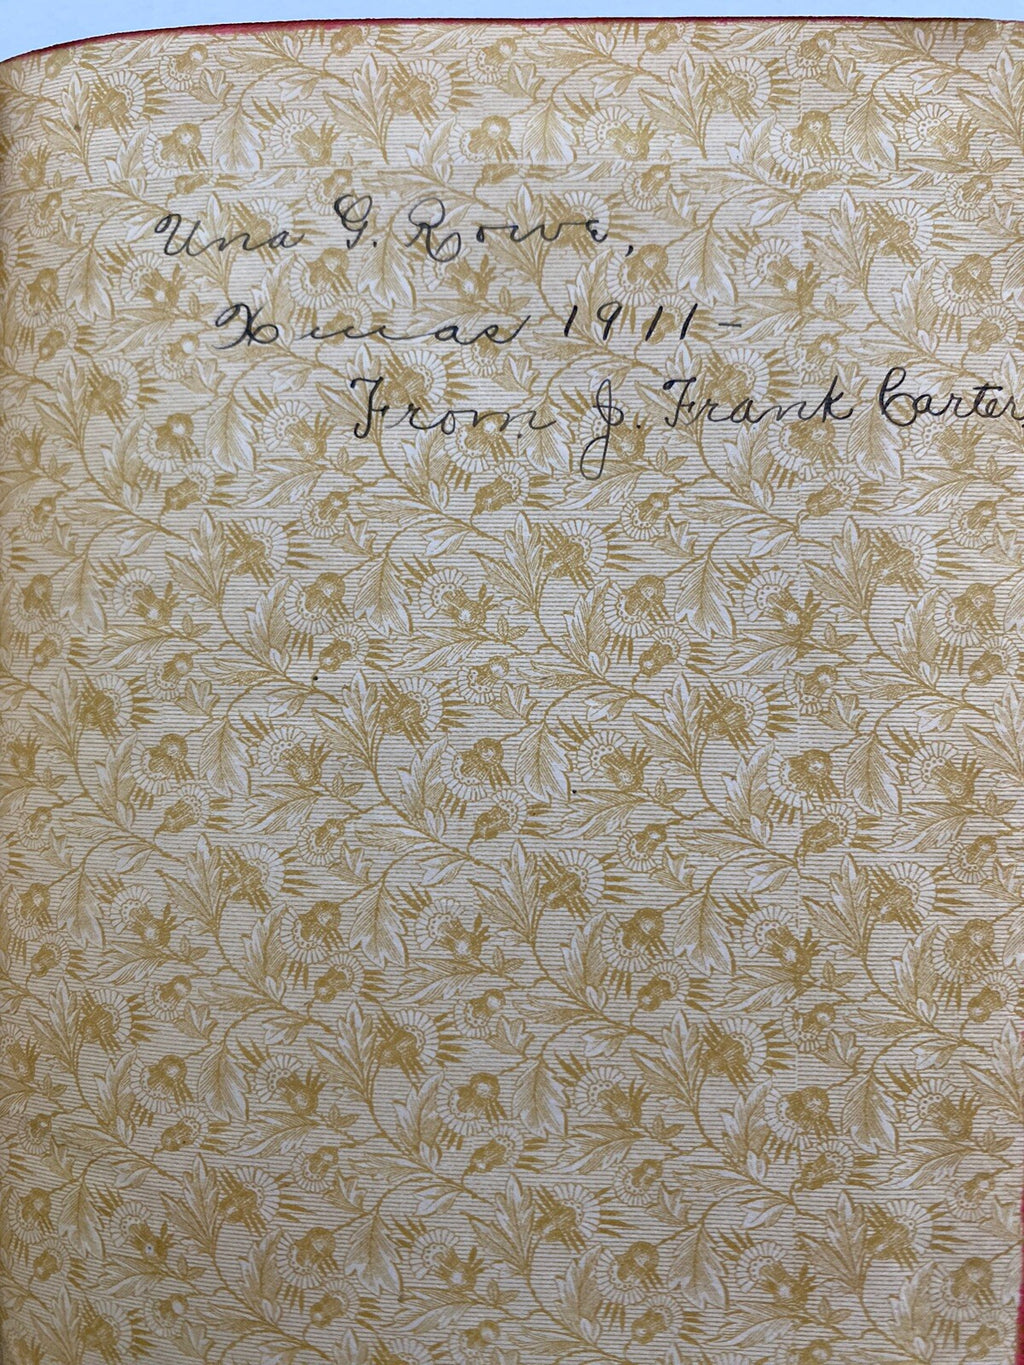 Una G. Rowe,
Xmas 1911-
From J. Frank Carter,